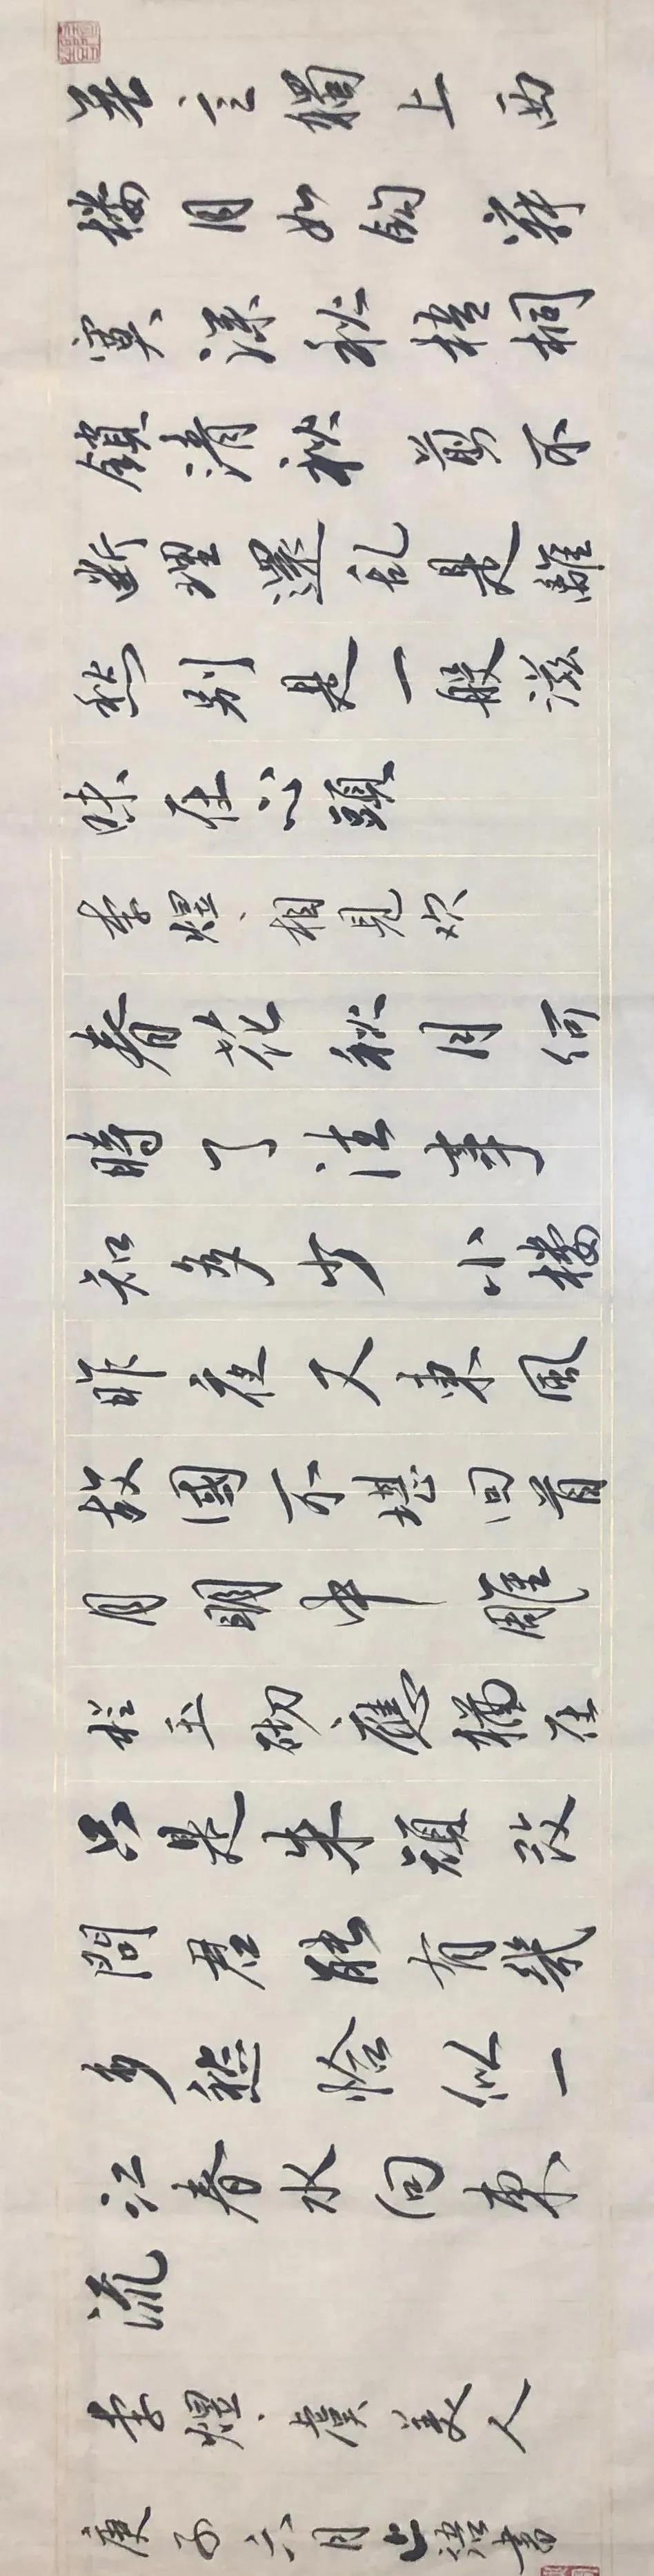 無言獨上西
樓月如鉤 寂
寞深秋梧桐
鎖清秋 剪不
斷理還乱是離
愁別是一般滋
味在心頭
李煜、相見欢
春花秋月何
時了往事
知多少 小樓
昨夜又東風
故國不堪回首
月明中 雕
栏玉砌應猶在
只是朱顔改
問君能有幾
多愁恰似一
江春水向東
流
李煜、虞美人
庚子六月書